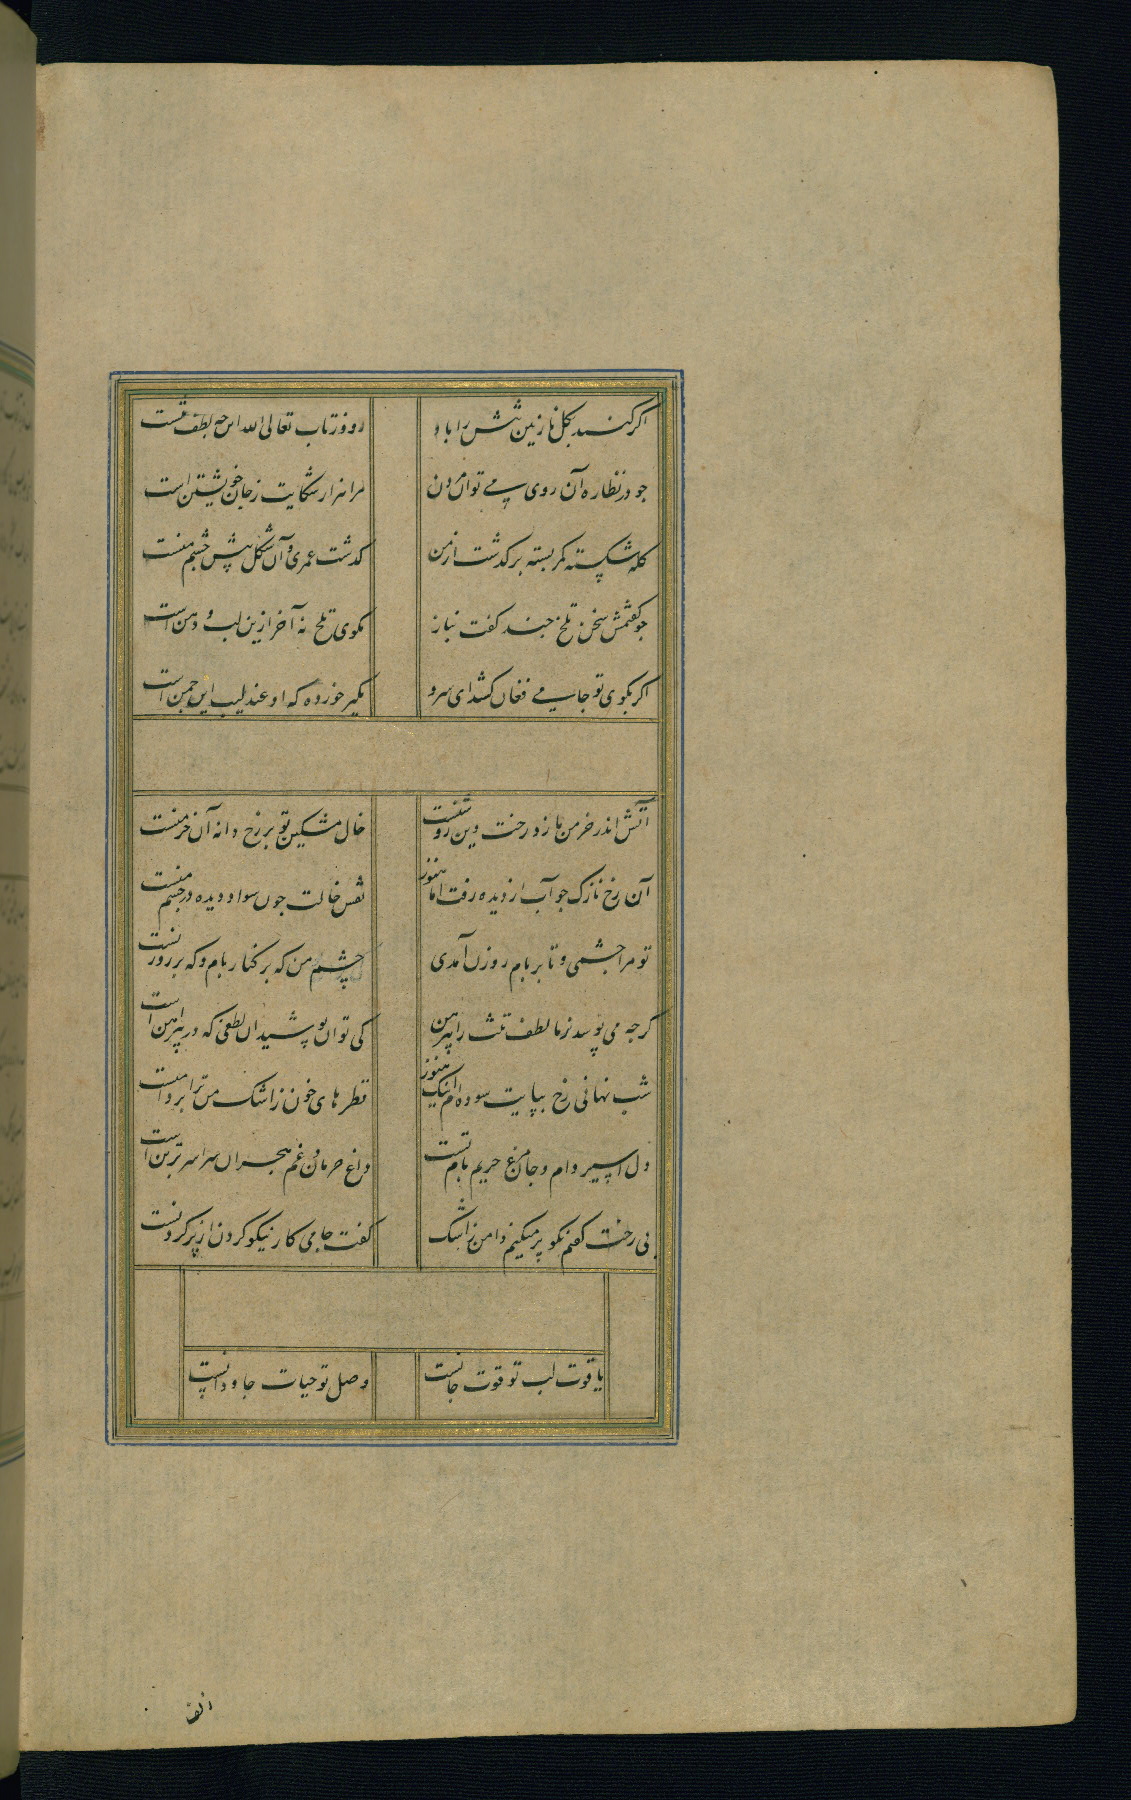 اگر کند بگل نازنین تنش را باد رود ز تاب تعالی الله این چه لطف تنست
چو در نظاره آن روی می توان مردن مرا هزار شکایت ز جان خویشتن است
کله شکسته کمر بسته برگذشت از من گذشت عمری و آن شکل پیش چشم منست
چو گفتمش سخن تلخ چند گفت بناز نکوی تلخ نه آخر ازین لب و دهن است
اگر بکوی تو جامی فغان کشد ای سرو مگیر خورده که او عندلیب این چمن است
آتش اندر خرمن ما زد رخت وین روشنست خال مشکین تو بر رخ دانه آن خرمنست
آن رخ نازک چو آب از دیده رفت اما هنوز نقس خالت چون سواد دیده در چشم منست
تو مرا چشمی و تا بر بام روزن آمدی چشم من که بر کنار بام و که بر روزنست
گرچه می پوسد ز ما لطف تنت را پیرهن کی توان پوشیدن لطفی که در پیراهن است
شب نهانی رخ بپایت سوده ام اینک هنوز قطرهای خون ز اشک من ترا بر دامنست
دل اسیر دام و جان مرغ حریم بام تست داغ حرمان و غم هجران سراسر بر تن است
بی رخت گفتم نکو پر میکنم دامن ز اشک گفت جامی کار نیکو کردن از پر کردنست
یاقوت لب تو قوت جانست وصل تو حیات جاودانست